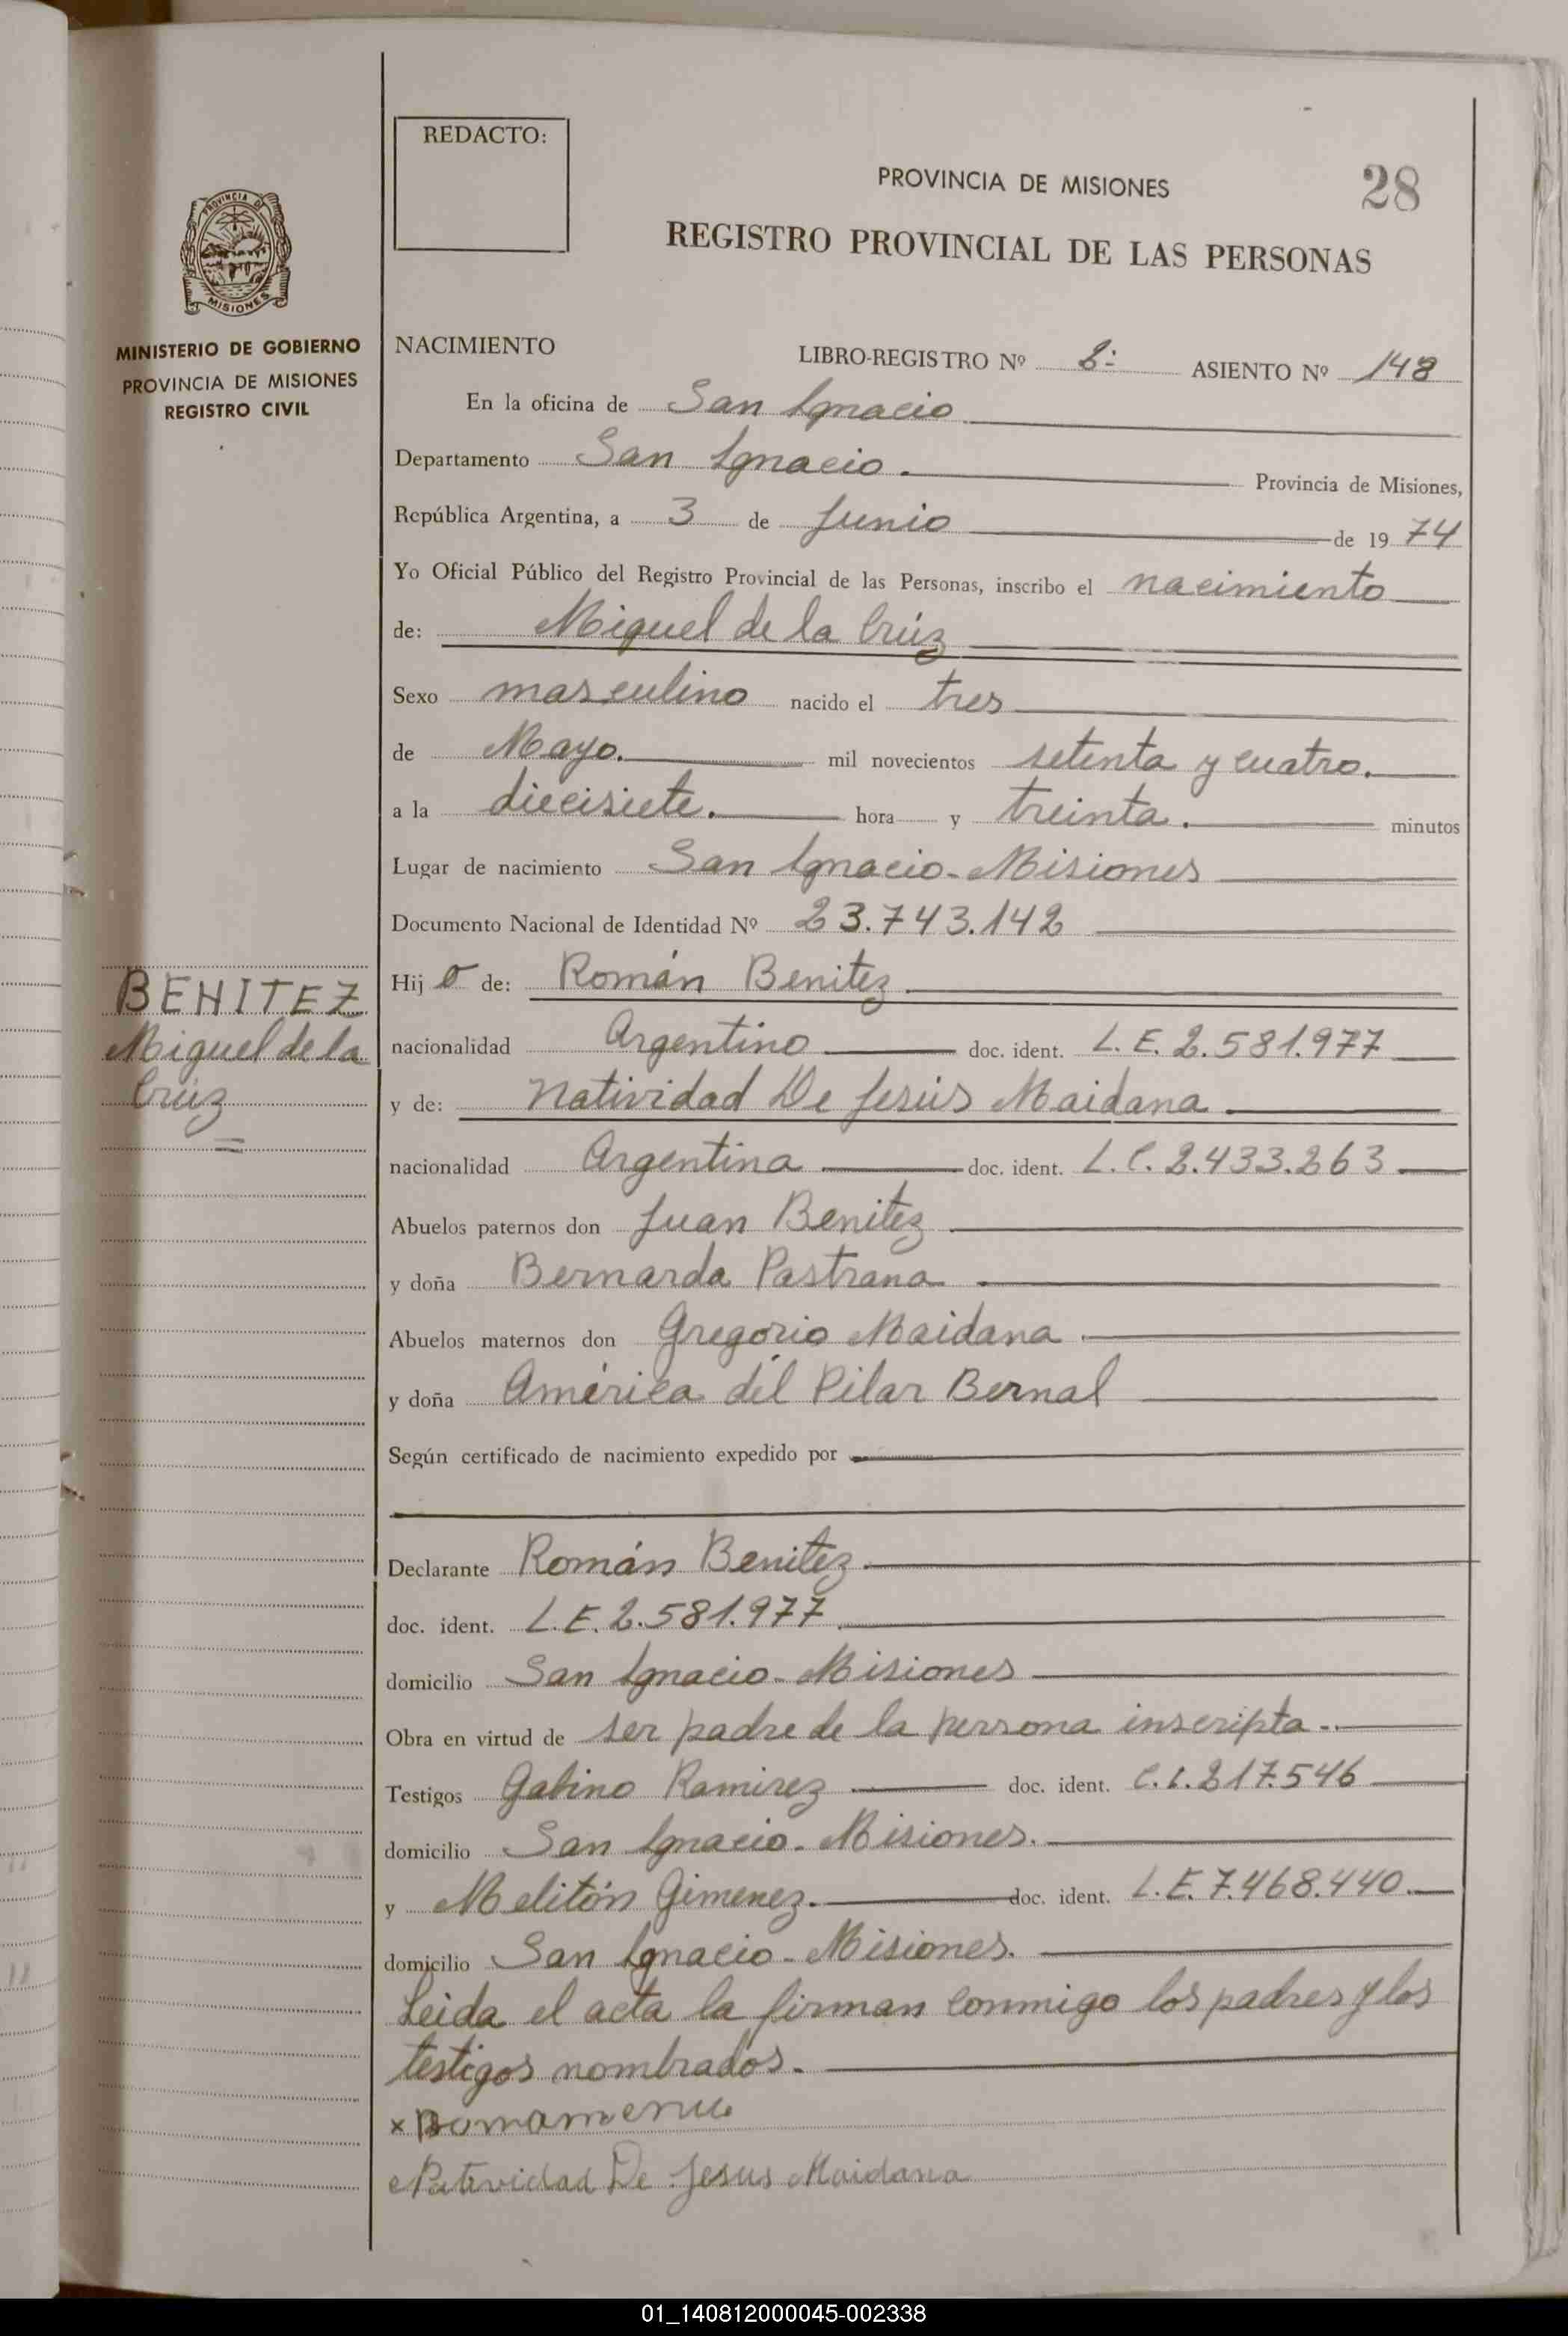 REDACTO:
PROVINCIA DE MISIONES
28
REGISTRO PROVINCIAL DE LAS PERSONAS
PROVINCIA D
MISIONES
MINISTERIO DE GOBIERNO
PROVINCIA DE MISIONES
REGISTRO CIVIL
NACIMIENTO
LIBRO-REGISTRO Nº 2º ASIENTO Nº 148
En la oficina de San Ignacio
Departamento San Ignacio. Provincia de Misiones,
República Argentina, a 3 de Junio de 1974
Yo Oficial Público del Registro Provincial de las Personas, inscribo el nacimiento
de: Miguel de la Crúz
Sexo masculino nacido el tres
de Mayo. mil novecientos setenta y cuatro.
a la diecisiete. hora y treinta. minutos
Lugar de nacimiento San Ignacio - Misiones
Documento Nacional de Identidad Nº 23.743.142
Hijo de: Román Benitez
BENITEZ
Miguel de la
Crúz
nacionalidad Argentino doc. ident. L. E. 2.581.977
y de: Natividad De Jesús Maidana
nacionalidad Argentina doc. ident. L.C. 2.433.263
Abuelos paternos don Juan Benitez
y doña Bernarda Pastrana
Abuelos maternos don Gregorio Maidana
y doña América del Pilar Bernal
Según certificado de nacimiento expedido por
Declarante Román Benitez
doc. ident. L.E. 2.581.977
domicilio San Ignacio - Misiones
Obra en virtud de ser padre de la persona inscripta -.
Testigos Gabino Ramirez doc. ident. C.I. 217.546
domicilio San Ignacio - Misiones.
y Melitón Gimenez. doc. ident. L.E. 7.468.440.
domicilio San Ignacio - Misiones.
Leida el acta la firman conmigo los padres y los
testigos nombrados.
Natividad De Jesus Maidana
01_140812000045-002338